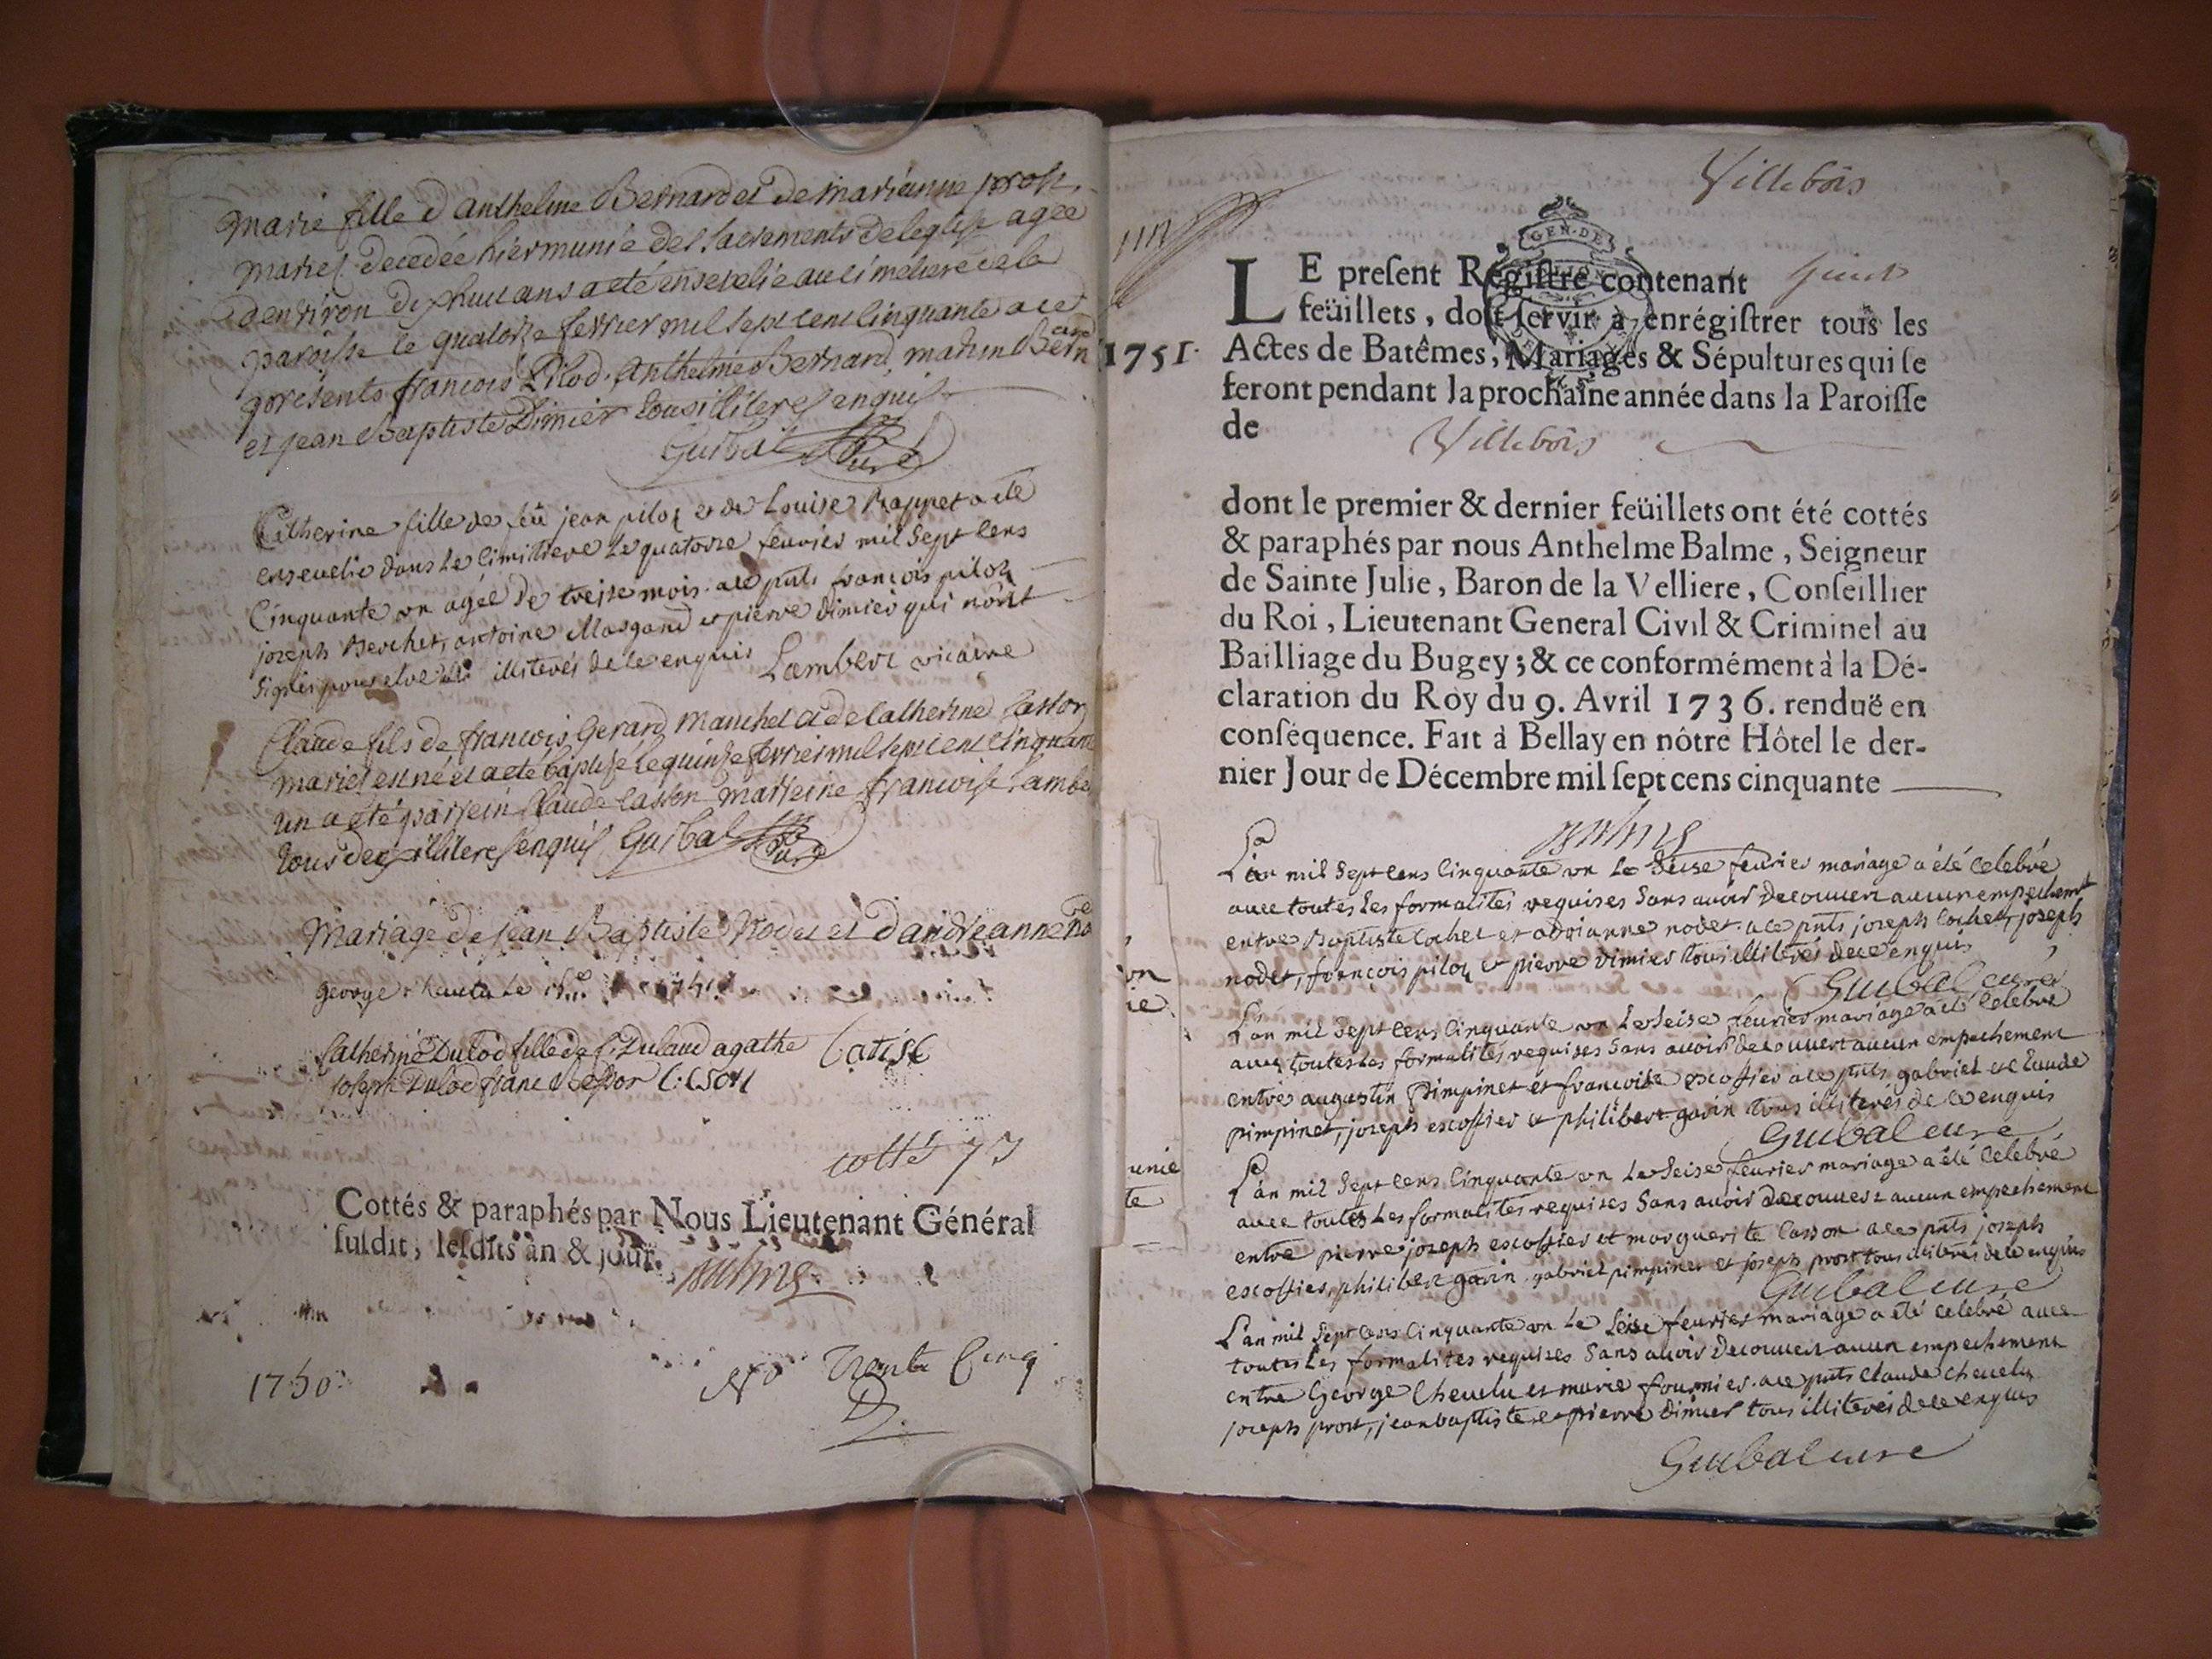 marie fille d'anthelme Bernard et de marianne prost
mariés decedée hier munie des sacrements de leglise agée
denviron dixhuit ans a eté ensevelie au cimetiere de la
paroisse le quatorze fevrier mil sept cent cinquante a ce
présents francois Pilod. Anthelme Bernard, martin Bern
ard
et jean Baptiste Dimier tous illiteres enquis
Guibal Curé
Catherine fille de feü jean piloz et de Louise Rappet a été
ensevelie dans le cimittiere le quatorze feurier mil sept cens
Cinquante un agée de treise mois. a ce pnts françois piloz
joseph Berchet, antoine Masgand et pierre dimier qui n'ont
signés pour etre illiterés de ce enquis Lambert vicaire
Claude fils de francois Gerard Manchet et de Catherine Casson
mariés est né et a eté baptisé le quinze fevrier mil sept cent cinquan
un a eté parrein Claude Casson marreine francoise Lambe
tous deux illiteres enquis Guibal Curé
Mariage de jean Baptiste Nodet et d'andreanne
george cheuelu le
Catherine Dulod fille de f. Dulaud agathe Catist
joseph Dulod franc Besson C: CSON
cotté 73
Cottés & paraphés par Nous Lieutenant Général
susdit, lesdits an & jour.
Balme
1750
No Trente Cinq
Villebois
GEN. DE
LION
LE present Régistre contenant huit
feüillets, doit servir à enrégistrer tous les
1751. Actes de Batêmes, Mariages & Sépultures qui se
feront pendant la prochaine année dans la Paroisse
de Villebois
dont le premier & dernier feüillets ont été cottés
& paraphés par nous Anthelme Balme, Seigneur
de Sainte Julie, Baron de la Velliere, Conseillier
du Roi, Lieutenant General Civil & Criminel au
Bailliage du Bugey; & ce conformément à la Dé-
claration du Roy du 9. Avril 1736. renduë en
conséquence. Fait à Bellay en nôtre Hôtel le der-
nier Jour de Décembre mil sept cens cinquante
Balme
L'an mil sept cens Cinquante un le seise feurier mariage a été celebré
auec toutes les formalités requises sans auoir decouuert aucun empechemt
entre Baptiste Cochet et adrianne nodet. a ce pnts joseph cochet, joseph
nodet, françois piloz et pierre dimier tous illiterés de ce enquis
Guibal curé
L'an mil sept cens Cinquante un le seise feurier mariage a été celebré
auec toutes les formalités requises sans auoir decouuert aucun empechement
entre augustin Pimpinet et françoise escoffier a ce pnts gabriel et claude
pimpinet, joseph escoffier et philibert gavin tous illiterés de ce enquis
Guibal curé
L'an mil sept cens Cinquante un le seise feurier mariage a été celebré
auec toutes les formalités requises sans auoir decouuert aucun empechement
entre pierre joseph escoffier et marguerite Casson a ce pnts joseph
escoffier, philibert gavin, gabriel pimpinet et joseph prost tous illiterés de ce enquis
Guibal curé
L'an mil sept cens Cinquante un le seise feurier mariage a été celebré auec
toutes les formalités requises sans auoir decouuert aucun empechement
entre George Cheuelu et marie fournier. a ce pnts claude cheuelu
joseph prost, jean baptiste et pierre dimier tous illiterés de ce enquis
Guibal curé
on
ie
unie
te